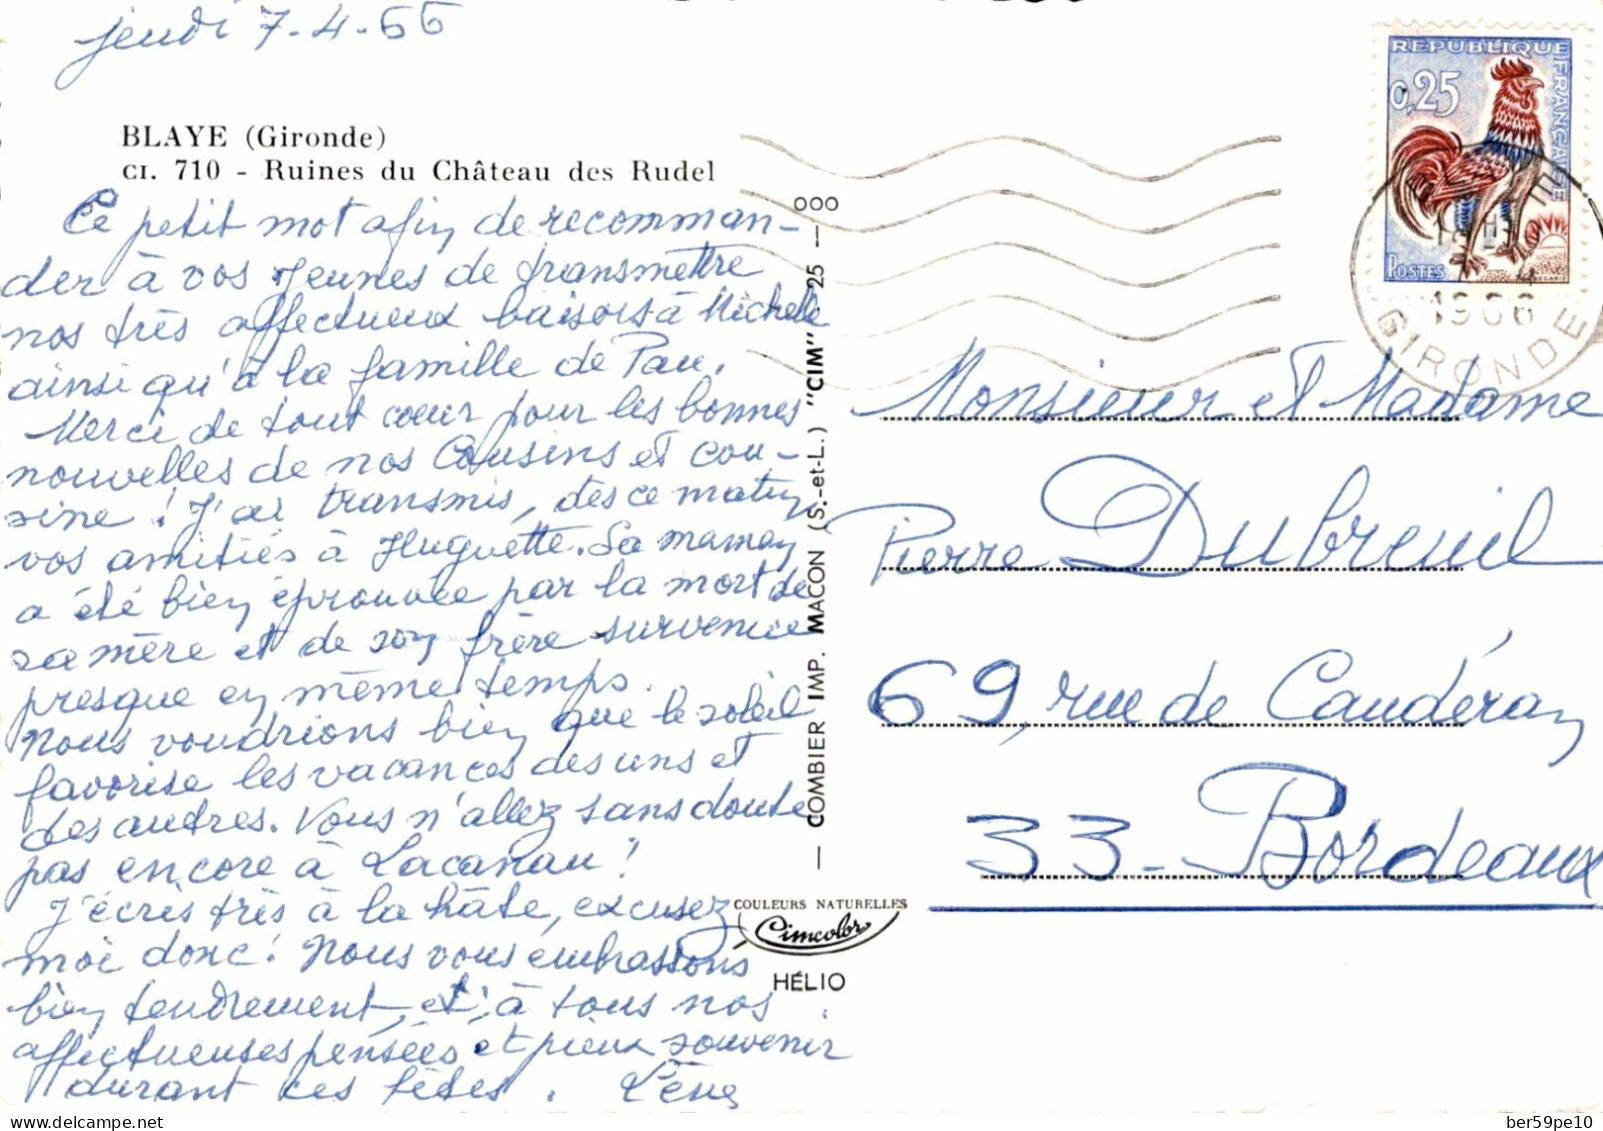 jeudi 7-4-66
BLAYE (Gironde)
CI. 710 - Ruines du Château des Rudel
Ce petit mot afin de recomman-
der à vos jeunes de transmettre
nos très affectueux baisers à Michelle
ainsi qu'à la famille de Pau.
Merci de tout cœur pour les bonnes
nouvelles de nos Cousins et cou-
sine ! J'ai transmis, dès ce matin
vos amitiés à Huguette. Sa maman
a été bien éprouvée par la mort de
sa mère et de son frère survenue
presque en même temps.
Nous voudrions bien que le soleil
favorise les vacances des uns et
des autres. Vous n'allez sans doute
pas encore à Lacanau !
J'écris très à la hâte, excusez
moi donc ! Nous vous embrassons
bien tendrement, et, à tous nos
affectueuses pensées et pieux souvenir
durant ces fêtes.
COMBIER IMP. MACON (S.-et-L.) "CIM" 25 — 000
COULEURS NATURELLES
Cimcolor
HÉLIO
REPUBLIQUE FRANÇAISE
0,25
POSTES
1966
GIRONDE
Monsieur et Madame
Pierre Dubreuil
69, rue de Caudéran
33 - Bordeaux
delcampe.net
ber59pe10